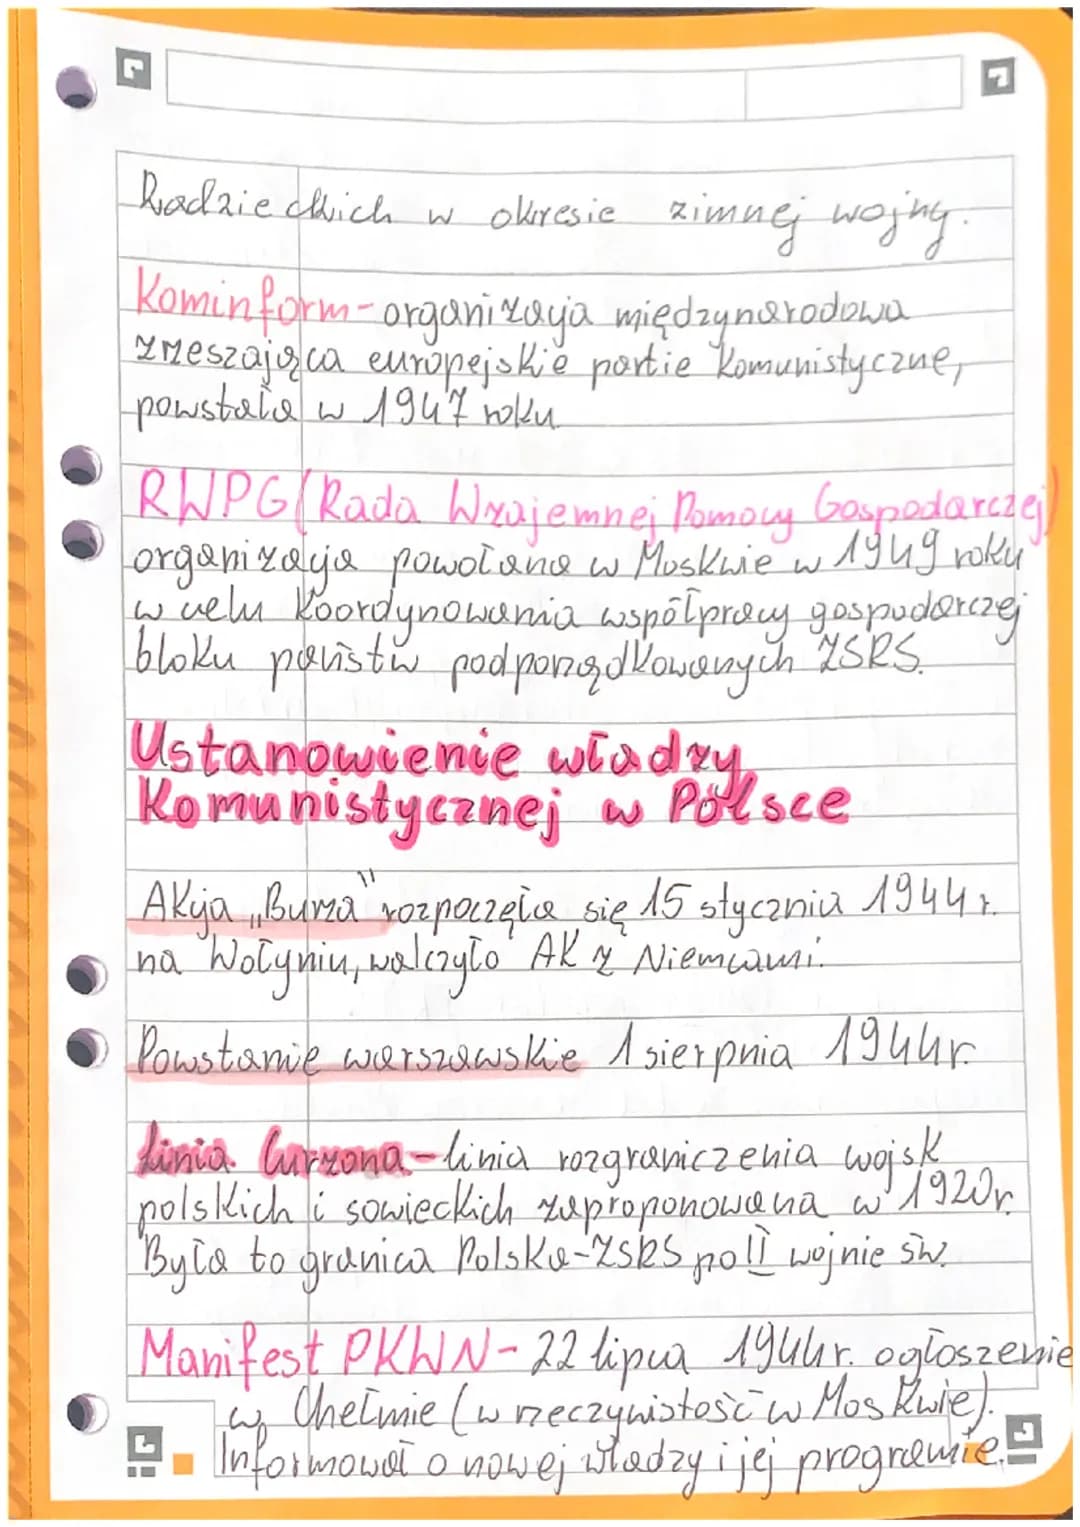 Radzieckich w okresie zimnej wojny.
Kominform - organizacja międzynarodowa
zrzeszająca europejskie partie komunistyczne,
powstała w 1947 roku.
RWPG (Rada Wzajemnej Pomocy Gospodarczej)
organizacja powołana w Moskwie w 1949 roku
w celu koordynowania współpracy gospodarczej
bloku państw podporządkowanych ZSRS.
Ustanowienie władzy
Komunistycznej w Polsce
Akcja „Burza" rozpoczęła się 15 stycznia 1944 r.
na Wołyniu, walczyło AK z Niemcami.
Powstanie warszawskie 1 sierpnia 1944r.
Linia Curzona - linia rozgraniczenia wojsk
polskich i sowieckich zaproponowana w 1920r.
Była to granica Polska-ZSRS po II wojnie św.
Manifest PKWN - 22 lipca 1944r. ogłoszenie
w Chełmie (w rzeczywistość w Moskwie).
Informował o nowej władzy i jej programie.